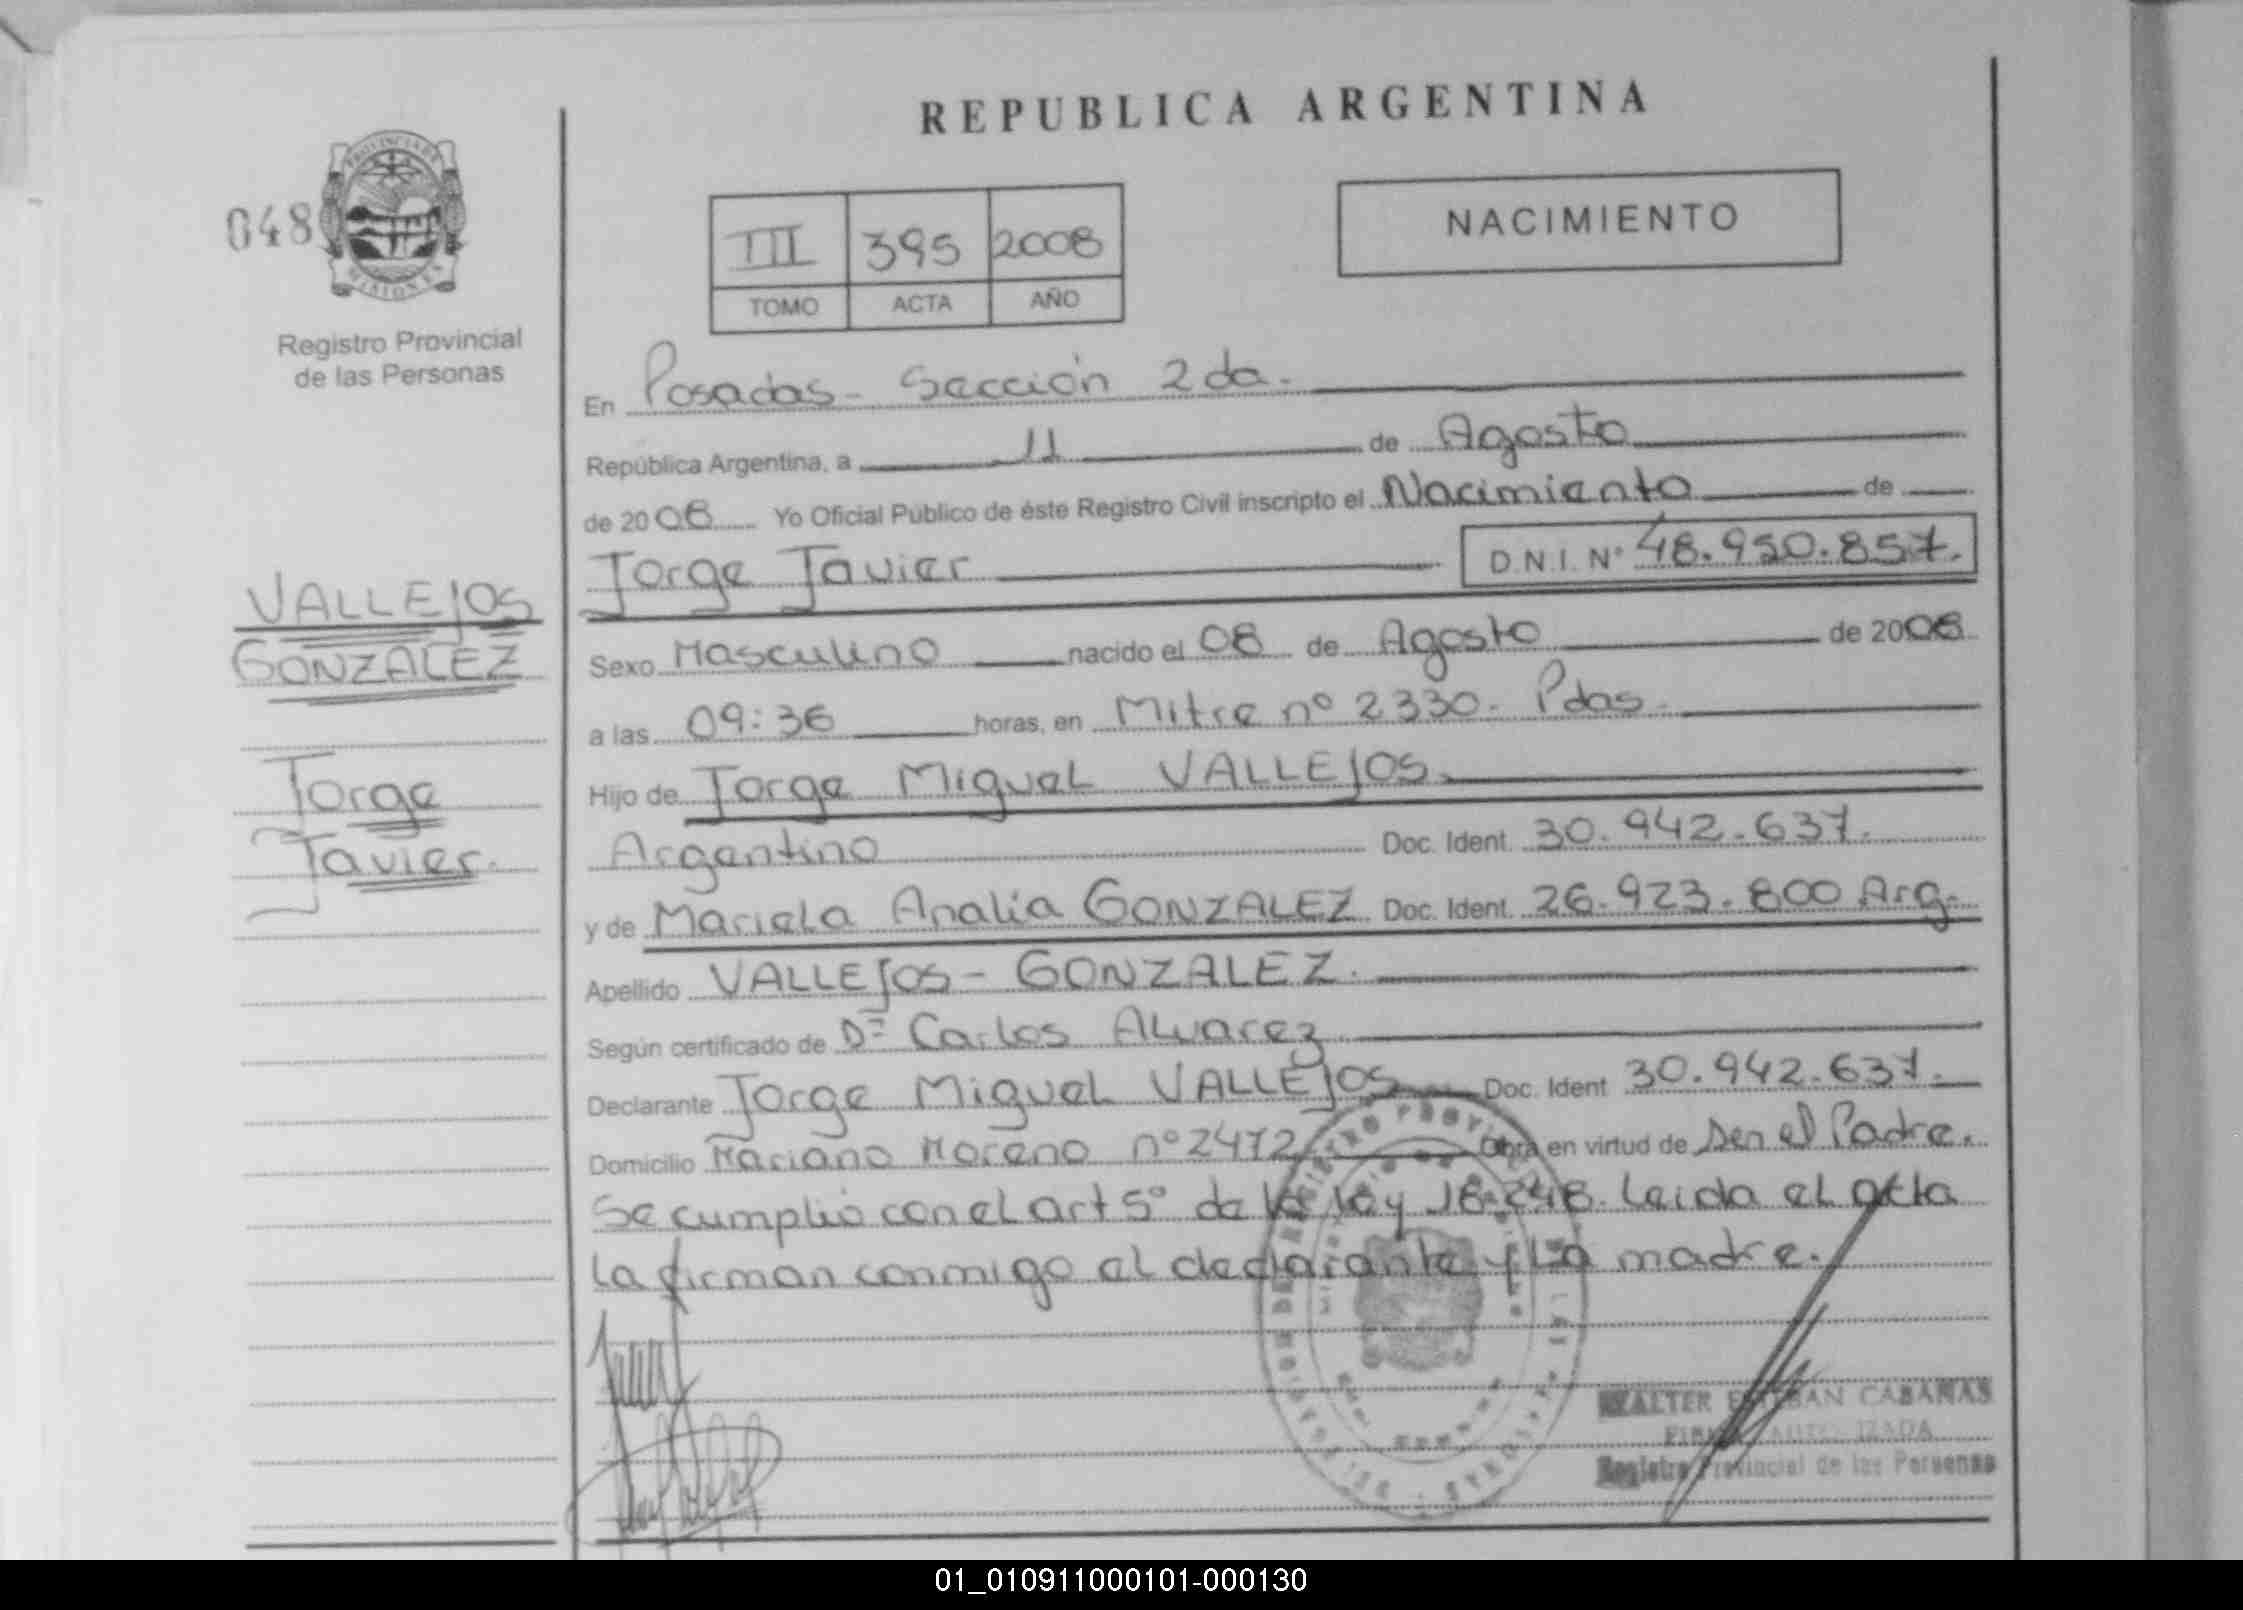 REPUBLICA ARGENTINA
048
PROVINCIA DE
MISIONES
Registro Provincial
de las Personas
III 395 2008
TOMO ACTA AÑO
NACIMIENTO
En Posadas - Sección 2da.
República Argentina, a 11 de Agosto
de 2008 Yo Oficial Público de éste Registro Civil inscripto el Nacimiento de
Jorge Javier D.N.I. Nº 48.950.857.
VALLEJOS
GONZALEZ
Jorge
Javier.
Sexo Masculino nacido el 08 de Agosto de 2008
a las 09:36 horas, en Mitre nº 2330. Pdas.
Hijo de Jorge Miguel VALLEJOS.
Argentino Doc. Ident. 30.942.637.
y de Mariela Analia GONZALEZ Doc. Ident. 26.923.800 Arg.
Apellido VALLEJOS - GONZALEZ.
Según certificado de Dr Carlos Alvarez
Declarante Jorge Miguel VALLEJOS Doc. Ident 30.942.637.
Domicilio Mariano Moreno nº 2472 Obra en virtud de Ser el Padre.
Se cumplió con el art 5º de la ley 18.248. Leida el acta
la firman conmigo el declarante y la madre.
WALTER ESTEBAN CABAÑAS
FIRMA AUTORIZADA
Registro Provincial de las Personas
01_010911000101-000130